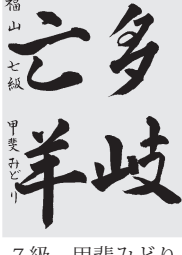 多岐
亡羊
福山 七級 甲斐みどり
7級 甲斐みどり